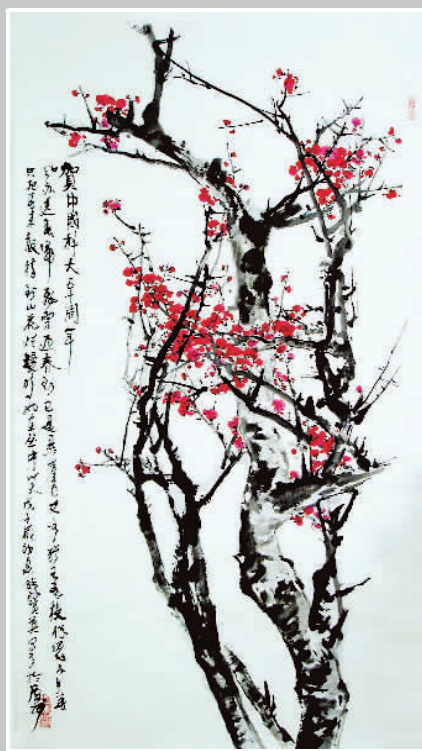 賀中國科大五十周年
风雨送春归飛雪迎春到已是悬崖百丈冰犹有花枝俏俏也不争春
只把春来报待到山花烂漫时她在丛中笑戊子